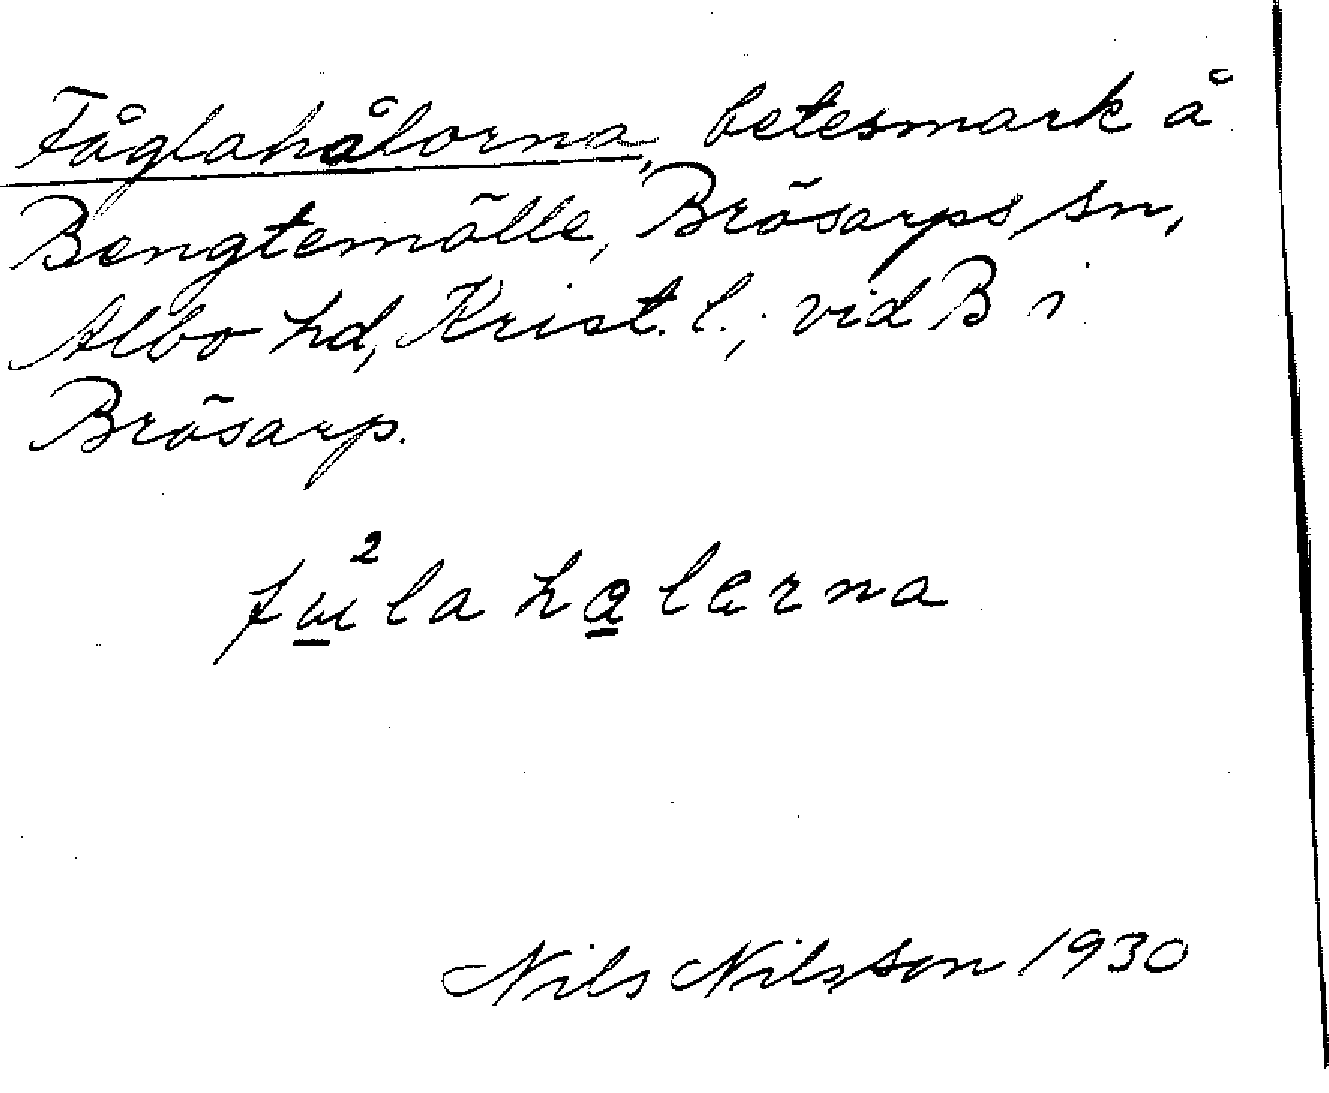 Fåglahålorna, betesmark å
Bengtemölle, Brösarps sn,
Albo hd, Krist. l., vid B i
Brösarp.
Nils Nilsson 1930